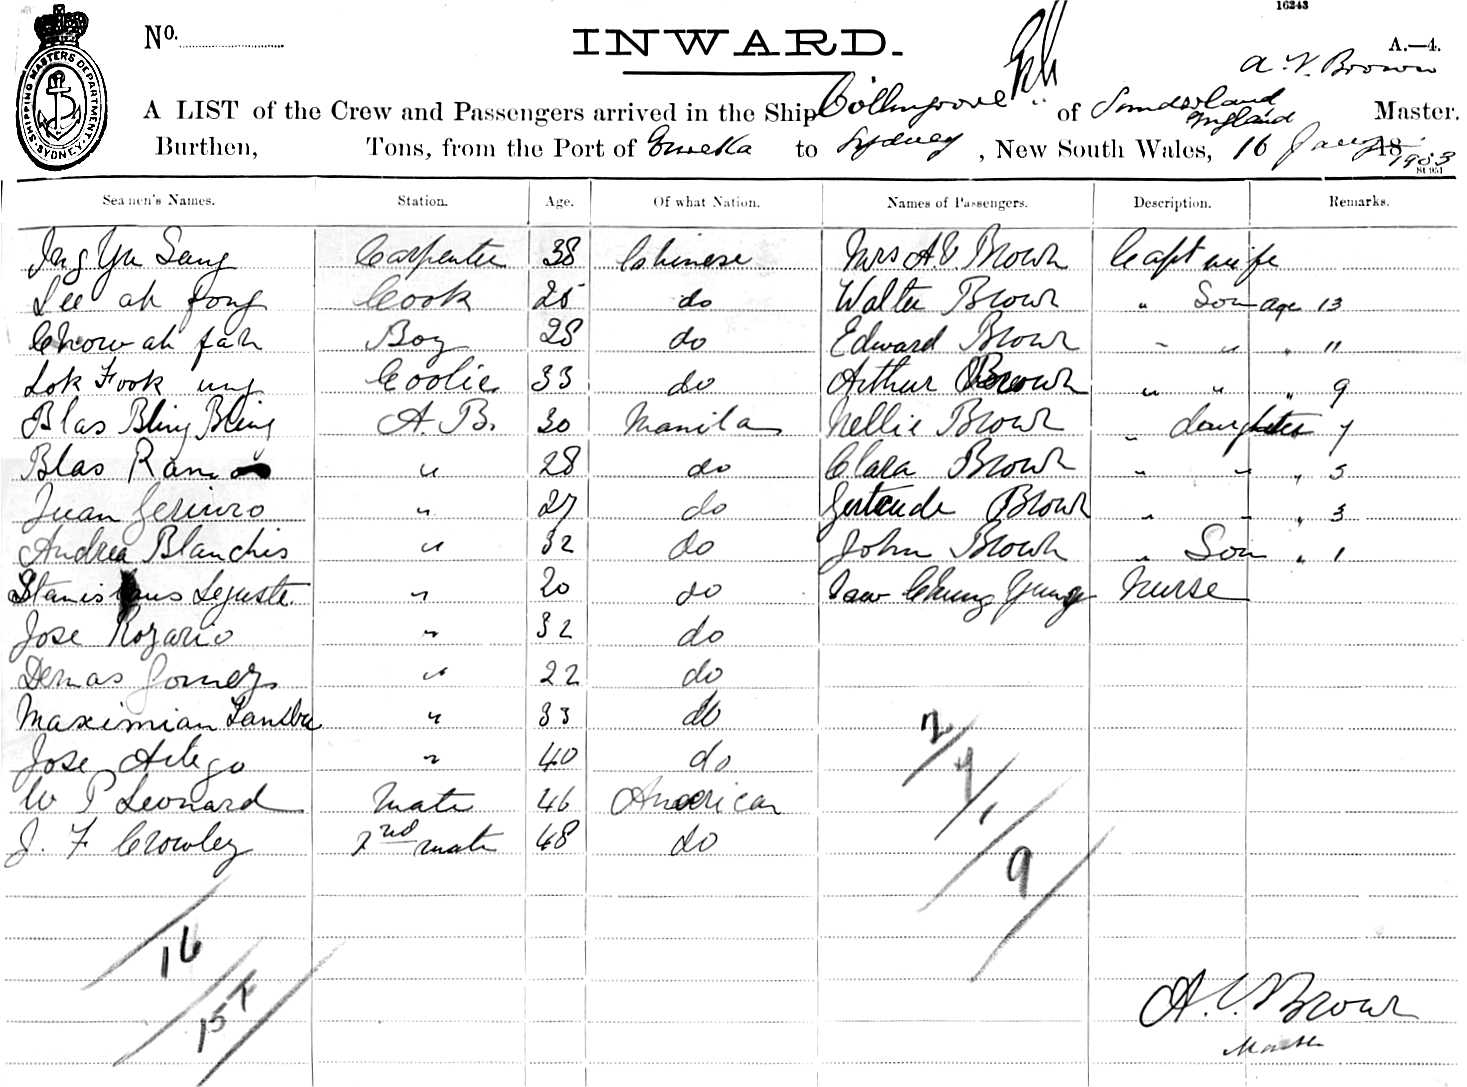 16243
No.
INWARD.
A.—4.
A. V. Brown
A LIST of the Crew and Passengers arrived in the Ship Collingrove of Sunderland England Master.
Burthen, Tons, from the Port of Eureka to Sydney, New South Wales, 16 Jany 18 1903
SHIPPING MASTERS DEPARTMENT SYDNEY
St 951
Seamen's Names. Station. Age. Of what Nation. Names of Passengers. Description. Remarks.
Ing Yu Sang Carpenter 38 Chinese Mrs A.V Brown Capt wife
Lee ah fong Cook 25 do Walter Brown " Son age 13
Chow ah fah Boy 28 do Edward Brown " " " 11
Lok Fook ung Coolie 33 do Arthur Brown " " " 9
Blas Bling Bling A.B. 30 Manila Nellie Brown " daughter 7
Blas Ramo " 28 do Clara Brown " " " 5
Juan " 27 do Gertrude Brown " " " 3
Andrea Blanchis " 32 do John Brown " Son " 1
Stanislaus " 20 do Chung Nurse
Jose Rozario " 32 do
Demas Gomez " 22 do
Maximian " 33 do
Jose " 40 do
W P Leonard Mate 46 American
J. F Crowley 2nd mate 48 do
2
9
16
15
A. V. Brown
Master